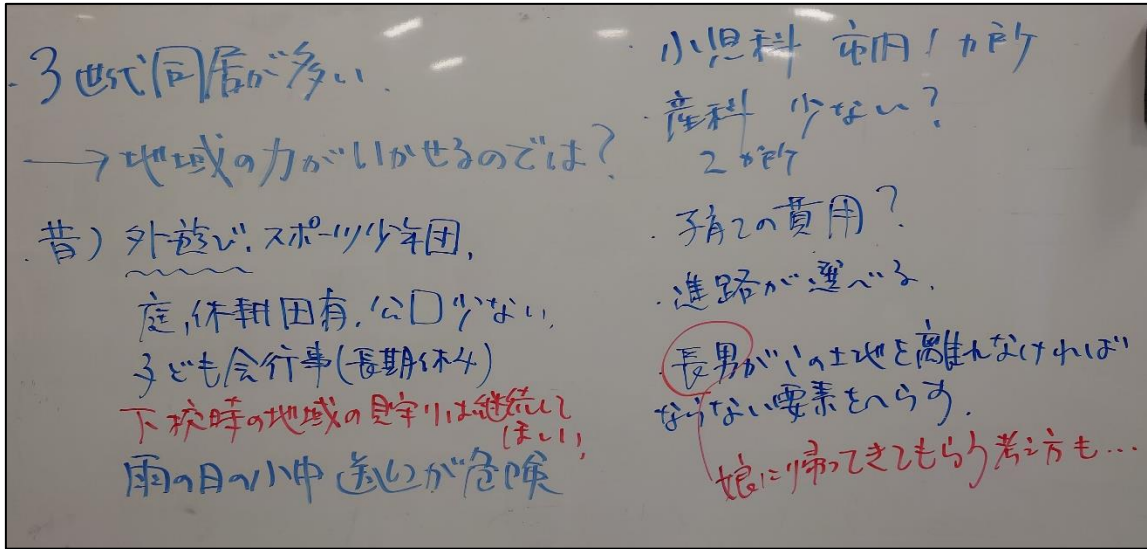 ・3世代同居が多い.
→地域の力がいかせるのでは?
・昔) 外遊び, スポーツ少年団,
庭,休耕田有,公口少ない,
子ども会行事(長期休み)
下校時の地域の見守りは継続して
ほしい,
雨の日の小中 送迎が危険
・小児科 市内1カ所
・産科 少ない?
2か所
・子育ての費用?
・進路が選べる.
・長男がこの土地を離れなければ
ならない要素をへらす.
娘に帰ってきてもらう考え方も…